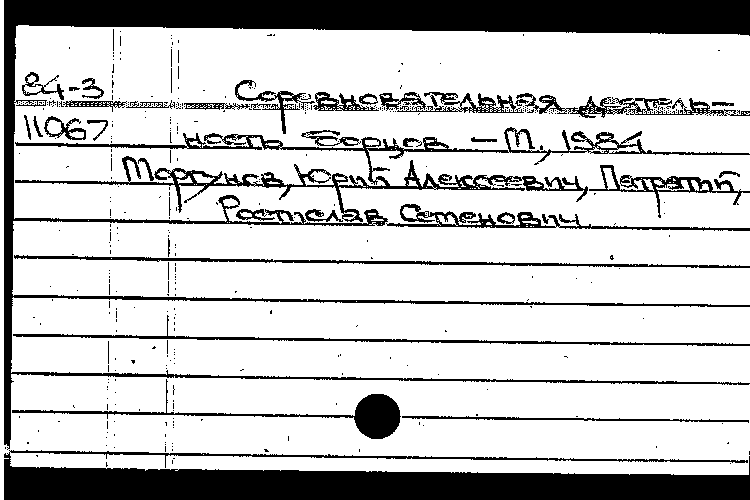 84-3 Соревновательная деятель-
11067 ность борцов. - М., 1984.
Моргунов, Юрий Алексеевич, Петрятий,
Ростислав Семенович